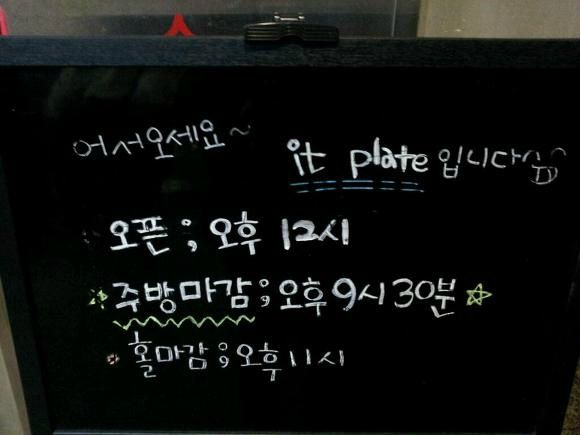 어서오세요~
it plate입니다
오픈; 오후 12시
주방마감; 오후 9시 30분
홀마감; 오후 11시